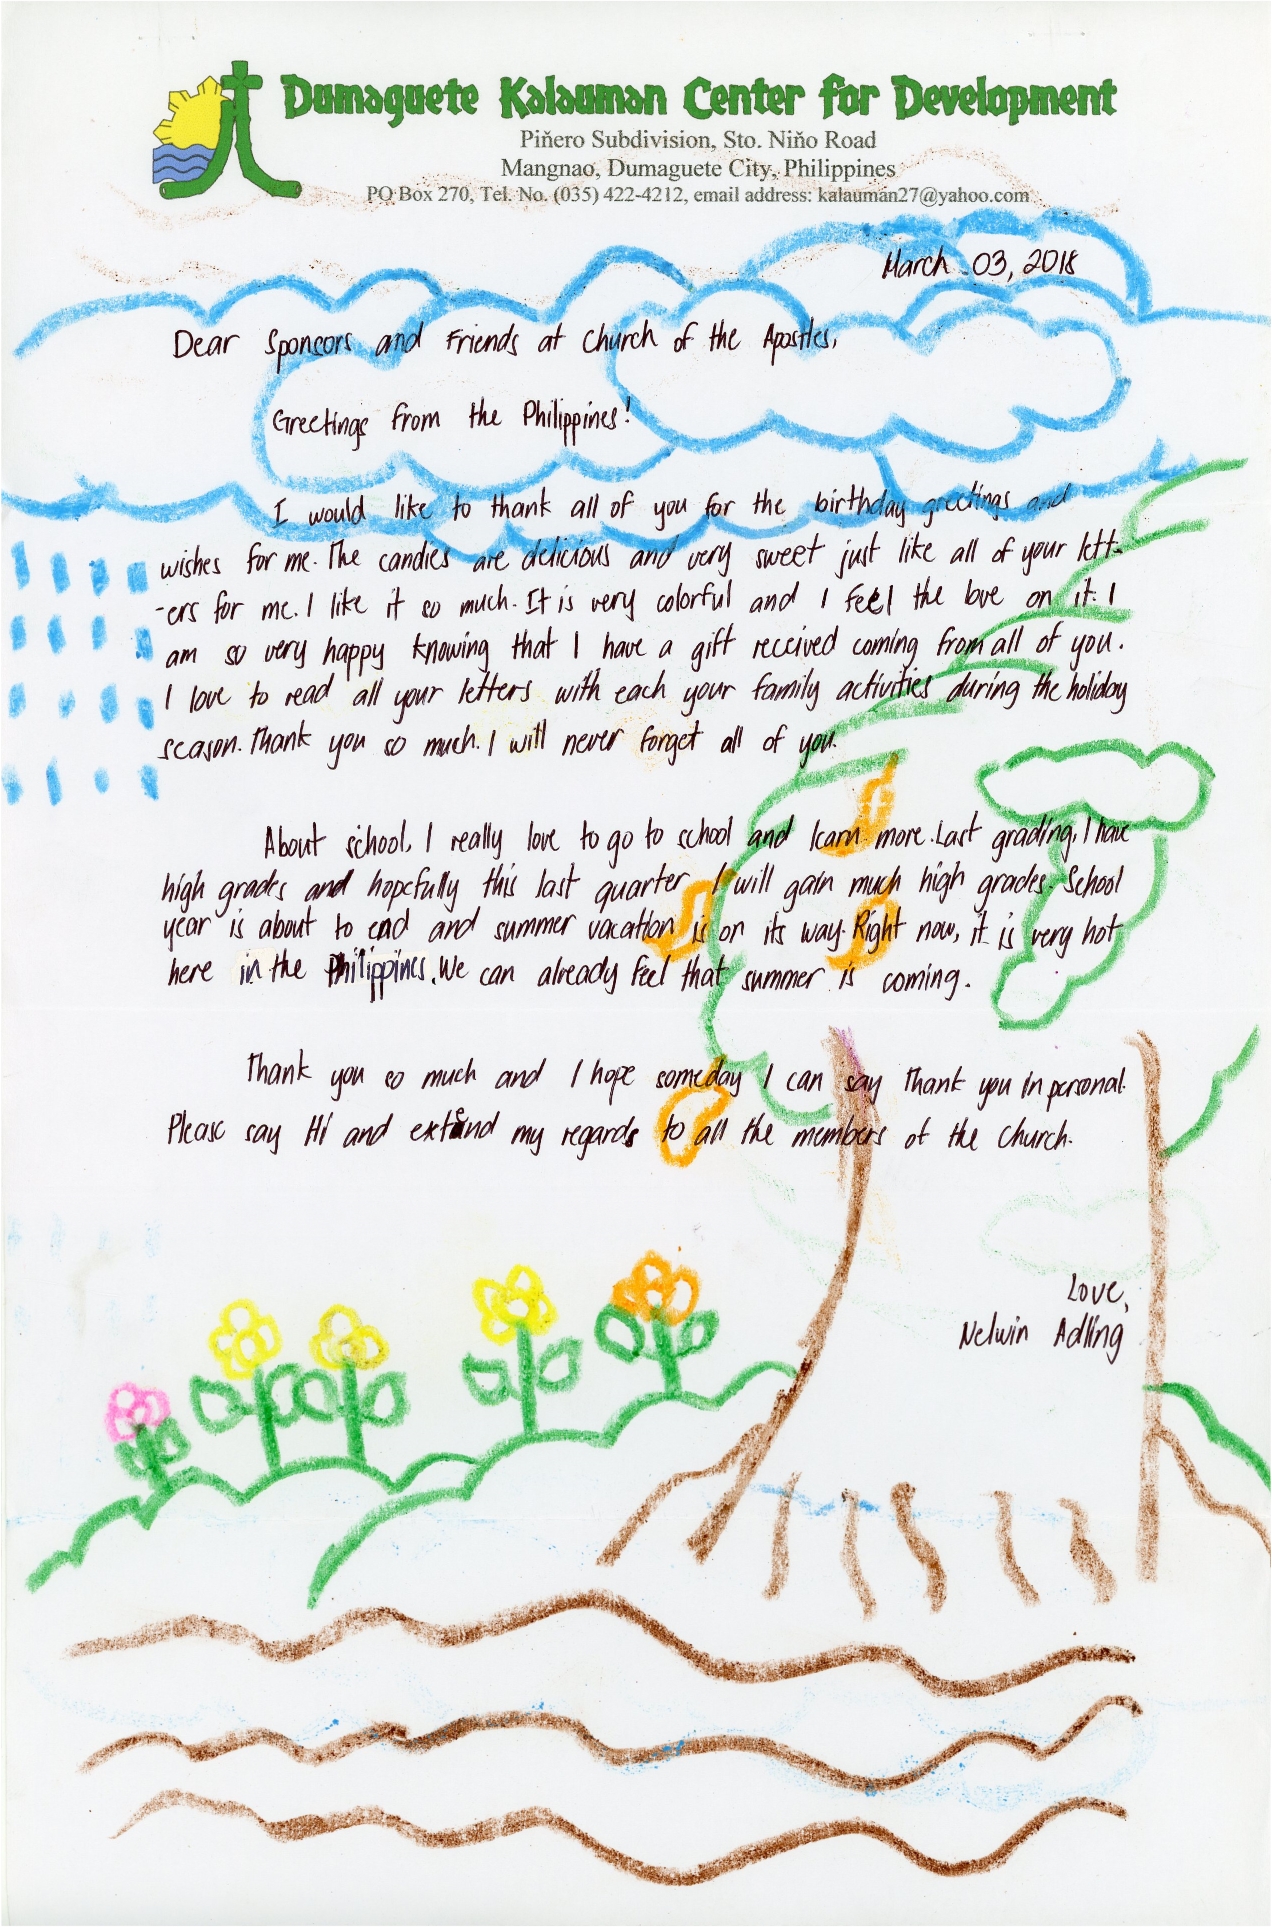 Dumaguete Kalauman Center for Development
Piňero Subdivision, Sto. Niňo Road
Mangnao, Dumaguete City, Philippines
PO Box 270, Tel. No. (035) 422-4212, email address: kalauman27@yahoo.com
March 03, 2018
Dear Sponsors and Friends at Church of the Apostles,
Greetings from the Philippines!
I would like to thank all of you for the birthday greetings and
wishes for me. The candies are delicious and very sweet just like all of your lett-
-ers for me. I like it so much. It is very colorful and I feel the love on it. I
am so very happy knowing that I have a gift received coming from all of you.
I love to read all your letters with each your family activities during the holiday
season. Thank you so much. I will never forget all of you.
About school, I really love to go to school and learn more. Last grading, I have
high grades and hopefully this last quarter I will gain much high grades. School
year is about to end and summer vacation is on its way. Right now, it is very hot
here in the Philippines. We can already feel that summer is coming.
Thank you so much and I hope someday I can say thank you in personal.
Please say Hi and extend my regards to all the members of the church.
Love,
Nelwin Adling